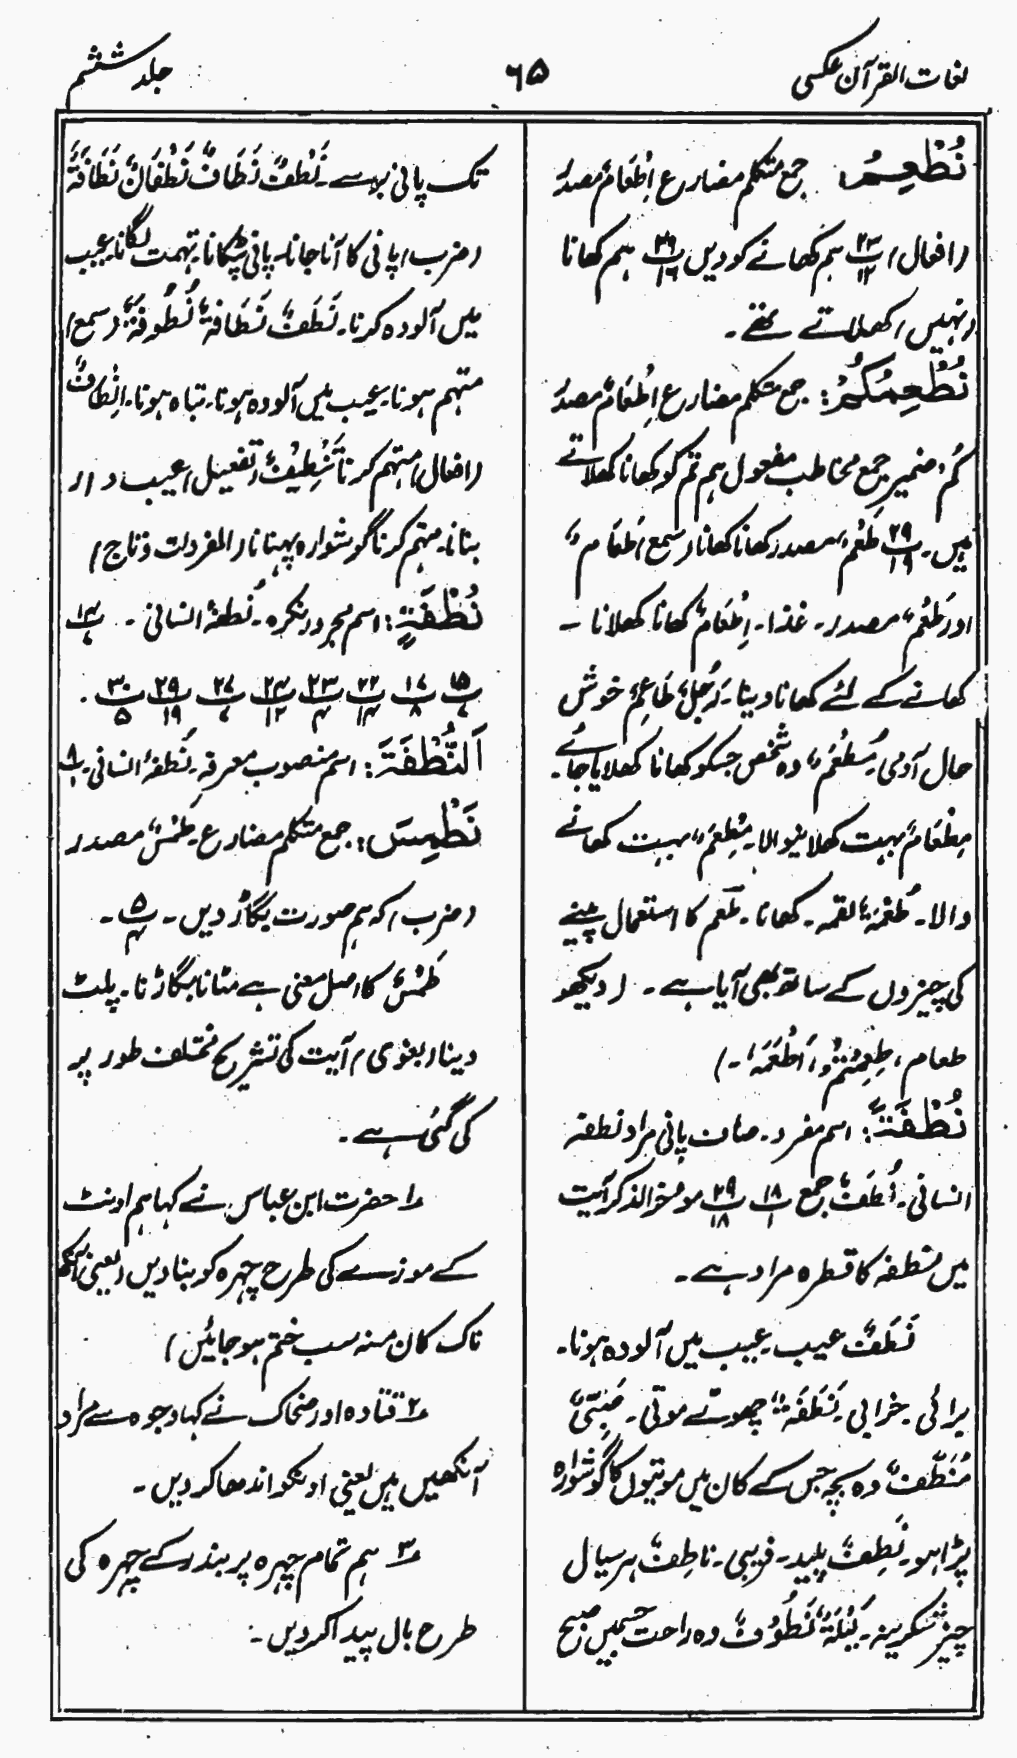 لغات القرآن عکسی
۶۵
جلد ششم
نُطْعِمُ: جمع متکلم مضارع اِطْعَامٌ مصدر
(افعال) ۲۳/۱۲ ہم کھانے کو دیں ۲۹/۱۶ ہم کھانا
(نہیں) کھلاتے تھے۔
نُطْعِمُکُمْ: جمع متکلم مضارع اِطْعَامٌ مصدر
کُمْ ضمیر جمع مخاطب مفعول ہم تم کو کھانا کھلاتے
ہیں۔ ۲۹/۱۹ طَعْمٌ مصدر کھانا کھانا (سمع) طَعَامٌ
اور طَعْمٌ مصدر۔ غذا۔ اِطْعَامٌ کھانا کھلانا ۔
کھانے کے لئے کھانا دینا۔ رَجُلٌ طَاعِمٌ خوش
حال آدمی۔ مُطْعَمٌ وہ شخص جسکو کھانا کھلایا جائے۔
مِطْعَامٌ بہت کھلانیوالا۔ مِطْعَمٌ بہت کھانے
والا۔ طُعْمَۃٌ لقمہ۔ کھانا۔ طَعم کا استعمال پینے
کی چیزوں کے ساتھ بھی آیا ہے۔ (دیکھو
طعام، طَعِمْتُمْ، اَطْعَمَہٗ۔)
نُطْفَۃٌ: اسم مفرد۔ صاف پانی مراد نطفہ
انسانی۔ نُطَفٌ جمع ۱۸/۱ ۲۹/۱۸ موخر الذکر آیت
میں نطفہ کا قطرہ مراد ہے۔
نَطَفٌ عیب۔ عیب میں آلودہ ہونا۔
برائی خرابی۔ نَطَفَۃٌ چھوٹے موتی۔ صَبِیٌّ
مُنَطَّفٌ وہ بچہ جس کے کان میں موتیوں کا گوشوارہ
پڑا ہو۔ نَطِفٌ پلید۔ فریبی۔ ناطِفٌ ہر سیال
چیز شکرینہ۔ لَیْلَۃٌ نَطُوْفٌ وہ رات جسمیں صبح
تک پانی برسے۔ نَطْفٌ نَطَافٌ نَطْفَانٌ نَطَافَۃٌ
(ضرب) پانی کا آنا جانا۔ پانی ٹپکانا۔ تہمت لگانا۔ عیب
میں آلودہ کرنا۔ نَطَفٌ نَطَافَۃٌ نُطُوفَۃٌ (سمع)
متہم ہونا۔ عیب میں آلودہ ہونا۔ تباہ ہونا۔ اِنْطَافٌ
(افعال) متہم کرنا تَنْطِیْفٌ (تفعیل) عیب دار
بنانا۔ متہم کرنا گوشوارہ پہنانا (المفردات و تاج)
نُطْفَۃٍ: اسم مجرور نکرہ۔ نُطفۂ انسانی ۔ ۱۴/۷
۱۵/۷ ۱۷/۸ ۲۲/۱۴ ۲۳/۴ ۲۴/۱۲ ۲۷/۷ ۲۹/۱۹ ۳۰/۵ ۔
اَلنُّطْفَۃَ: اسم منصوب معرفہ۔ نُطفۂ انسانی۔ ۱۸/۱
نَطْمِسَ: جمع متکلم مضارع۔ طَمْسٌ مصدر
(ضرب) کہ ہم صورت بگاڑ دیں۔ ۵/۴ ۔
طَمْسٌ کا اصل معنی ہے مٹانا بگاڑنا۔ پلٹ
دینا (بغوی) آیت کی تشریح مختلف طور پر
کی گئی ہے۔
۱ حضرت ابن عباس نے کہا ہم اونٹ
کے موزے کی طرح چہرہ کو بنا دیں (یعنی آنکھ
ناک کان منہ سب ختم ہو جائیں)
۲ قتادہ اور ضحاک نے کہا وجوہ سے مراد
آنکھیں ہیں یعنی اونکو اندھا کر دیں۔
۳ ہم تمام چہرہ پر بندر کے چہرہ کی
طرح بال پیدا کر دیں۔